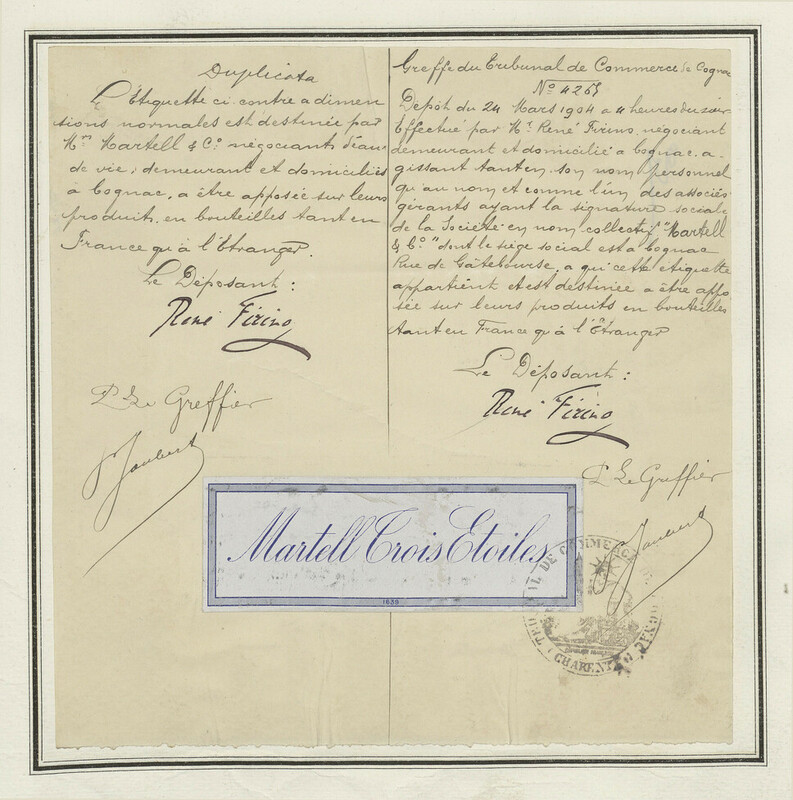 Duplicata
L'Etiquette ci contre a dimen
sions normales est destinée par
Mrs Martell & Co négociants d'eau
de vie, demeurant et domiciliés
à Cognac, a être apposée sur leurs
produits en bouteilles tant en
France qu'à l'Etranger.
Le Déposant :
René Firino
P Le Greffier
Joubert
Greffe du Tribunal de Commerce de Cognac
No 4265
Depôt du 24 Mars 1904 a 4 heures du soir
Effectué par Mr René Firino, négociant
demeurant et domicilié a Cognac, a
gissant tant en son nom personnel
qu'au nom et comme l'un des associés
gérants ayant la signature sociale
de la Société en nom collectif "Martell
& Co" dont le siège social est a Cognac
Rue de Gâtebourse, a qui cette etiquette
appartient et est destinée a être appo
sée sur leurs produits en bouteilles
tant en France qu'à l'Etranger
Le Déposant :
René Firino
P Le Greffier
Joubert
Martell Trois Etoiles
1635
TRIBUNAL DE COMMERCE
CHARENTE